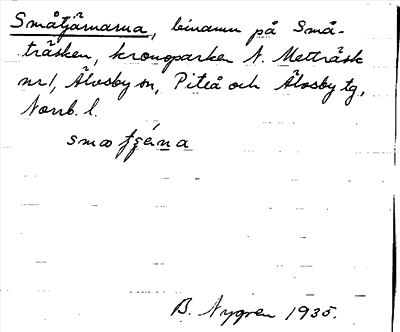 Småtjärnarna, binamn på Små-
träsken, kronoparken N. Metträsk
nr 1, Älvsby sn, Piteå och Älvsby tg,
Norrb. l.
B. Nygren 1935.